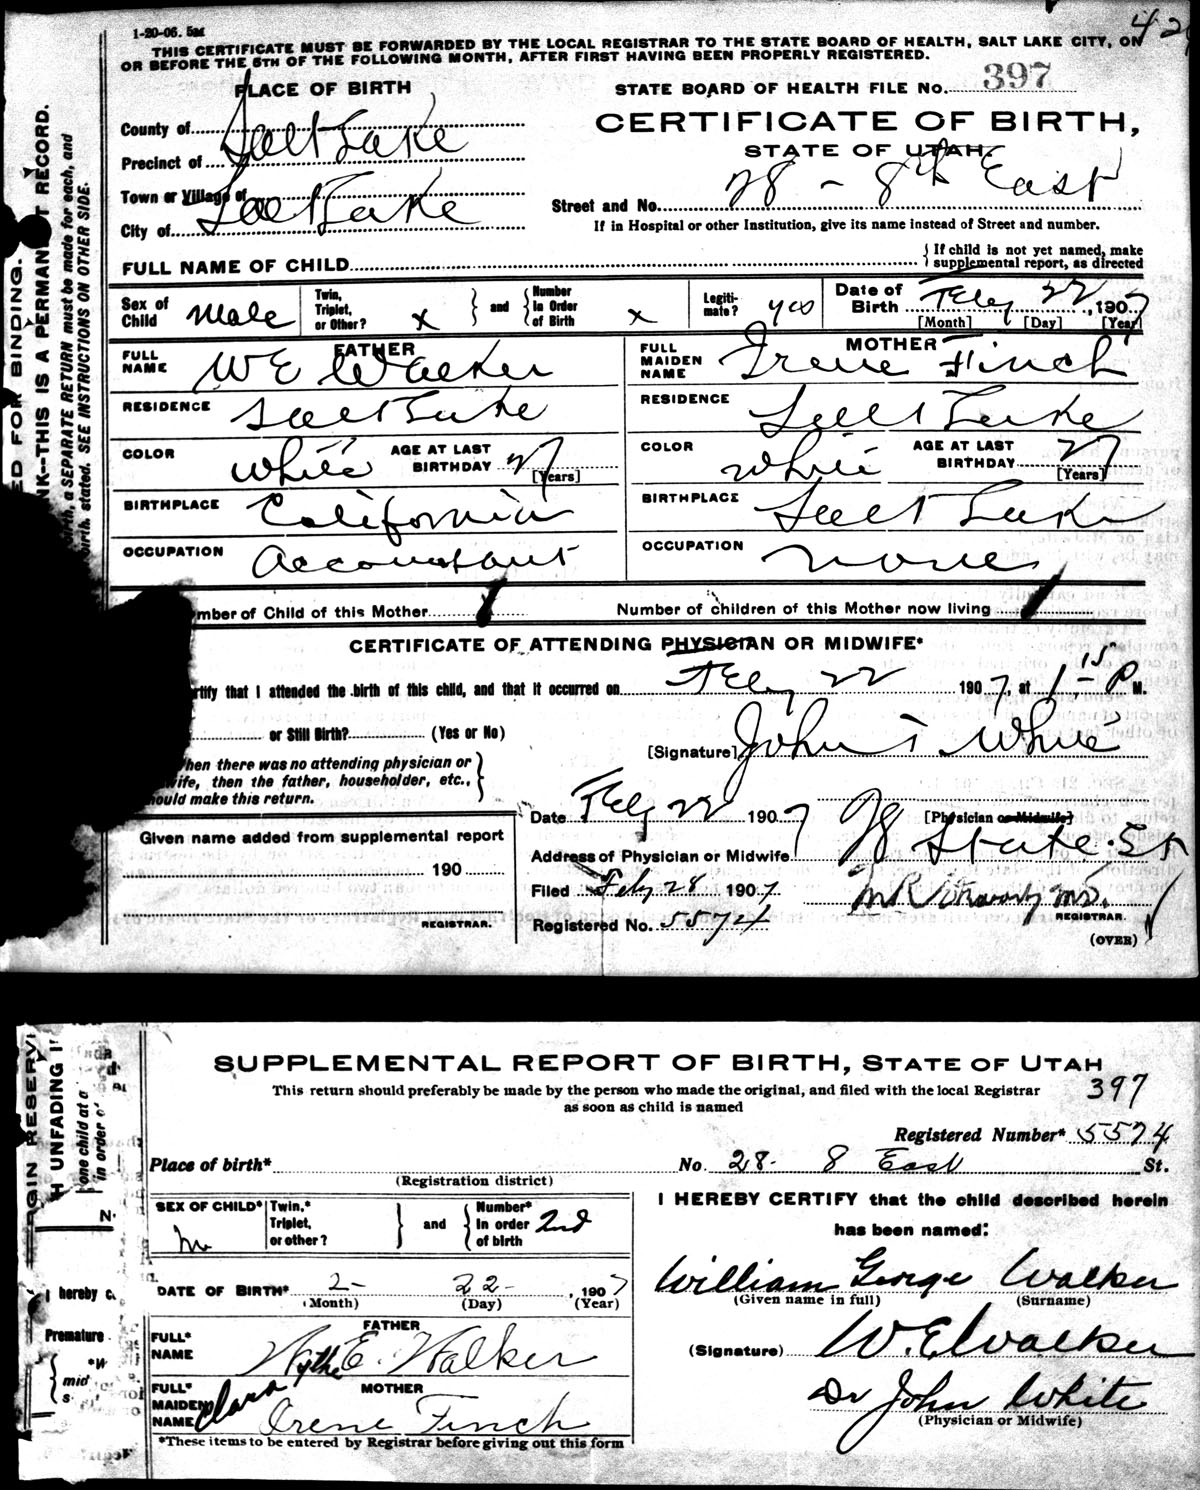 1-20-06. 5M
42
THIS CERTIFICATE MUST BE FORWARDED BY THE LOCAL REGISTRAR TO THE STATE BOARD OF HEALTH, SALT LAKE CITY, ON
OR BEFORE THE 5TH OF THE FOLLOWING MONTH, AFTER FIRST HAVING BEEN PROPERLY REGISTERED.
PLACE OF BIRTH
STATE BOARD OF HEALTH FILE NO. 397
CERTIFICATE OF BIRTH,
STATE OF UTAH.
County of Salt Lake
Precinct of
Town or Village of
City of Salt Lake
Street and No. 28 - 8th East
If in Hospital or other Institution, give its name instead of Street and number.
FULL NAME OF CHILD
{ If child is not yet named, make
supplemental report, as directed
Sex of Child Male
Twin, Triplet, or Other? x } and { Number In Order of Birth x
Legiti-mate? yes
Date of Birth Feby 22, 1907
[Month] [Day] [Year]
FATHER
FULL NAME W E Walker
RESIDENCE Salt Lake
COLOR White AGE AT LAST BIRTHDAY 27 [Years]
BIRTHPLACE California
OCCUPATION Accountant
MOTHER
FULL MAIDEN NAME Irene Finch
RESIDENCE Salt Lake
COLOR White AGE AT LAST BIRTHDAY 27 [Years]
BIRTHPLACE Salt Lake
OCCUPATION none
mber of Child of this Mother 1
Number of children of this Mother now living 1
CERTIFICATE OF ATTENDING PHYSICIAN OR MIDWIFE*
rtify that I attended the birth of this child, and that it occurred on Feby 22 1907, at 1 15 P M.
or Still Birth? (Yes or No)
[Signature] John T White
hen there was no attending physician or
wife, then the father, householder, etc.,
ould make this return.
[Physician or Midwife]
Date Feby 22 1907
Address of Physician or Midwife 78 State St
Given name added from supplemental report
190
REGISTRAR.
Filed Feby 28 1907
M R M.D.
REGISTRAR.
Registered No. 5574
(OVER)
ED FOR BINDING.
NK--THIS IS A PERMANENT RECORD.
irth, a SEPARATE RETURN must be made for each, and
birth, stated. SEE INSTRUCTIONS ON OTHER SIDE.
SUPPLEMENTAL REPORT OF BIRTH, STATE OF UTAH
This return should preferably be made by the person who made the original, and filed with the local Registrar
as soon as child is named
397
Registered Number* 5574
Place of birth*
(Registration district)
No. 28- 8 East St.
SEX OF CHILD* M
Twin,* Triplet, or other? } and { Number* In order of birth 2nd
I HEREBY CERTIFY that the child described herein
has been named:
DATE OF BIRTH* 2- 22- , 1907
(Month) (Day) (Year)
William George Walker
(Given name in full) (Surname)
FATHER
FULL* NAME Wythe E. Walker
(Signature) W. E Walker
MOTHER
FULL* MAIDEN NAME Clara Irene Finch
Dr John White
(Physician or Midwife)
*These items to be entered by Registrar before giving out this form
RGIN RESERV
H UNFADING I
one child at a
in order o
N.
I hereby c
Premature
*W
mid
s